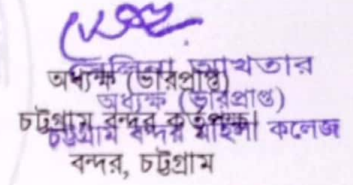 আখতার
অধ্যক্ষ (ভারপ্রাপ্ত)
অধ্যক্ষ (ভারপ্রাপ্ত)
চট্টগ্রাম বন্দর কর্তৃপক্ষ
চট্টগ্রাম বন্দর মহিলা কলেজ
বন্দর, চট্টগ্রাম